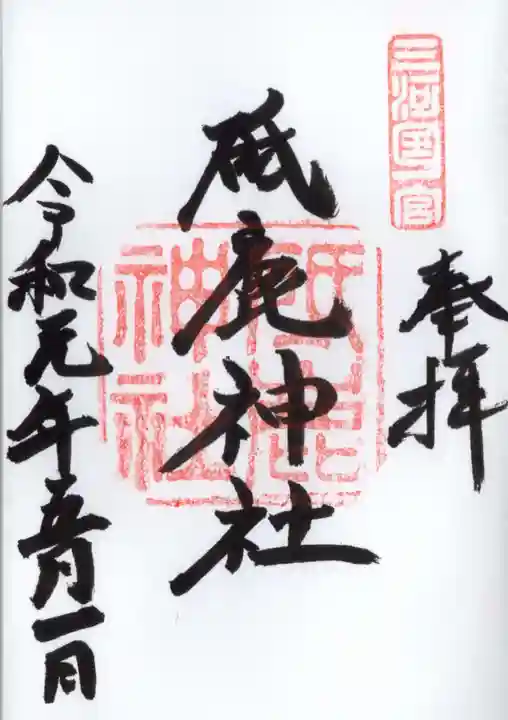 三河國一宮
奉拝
砥鹿神社
砥鹿神社
令和元年五月一日